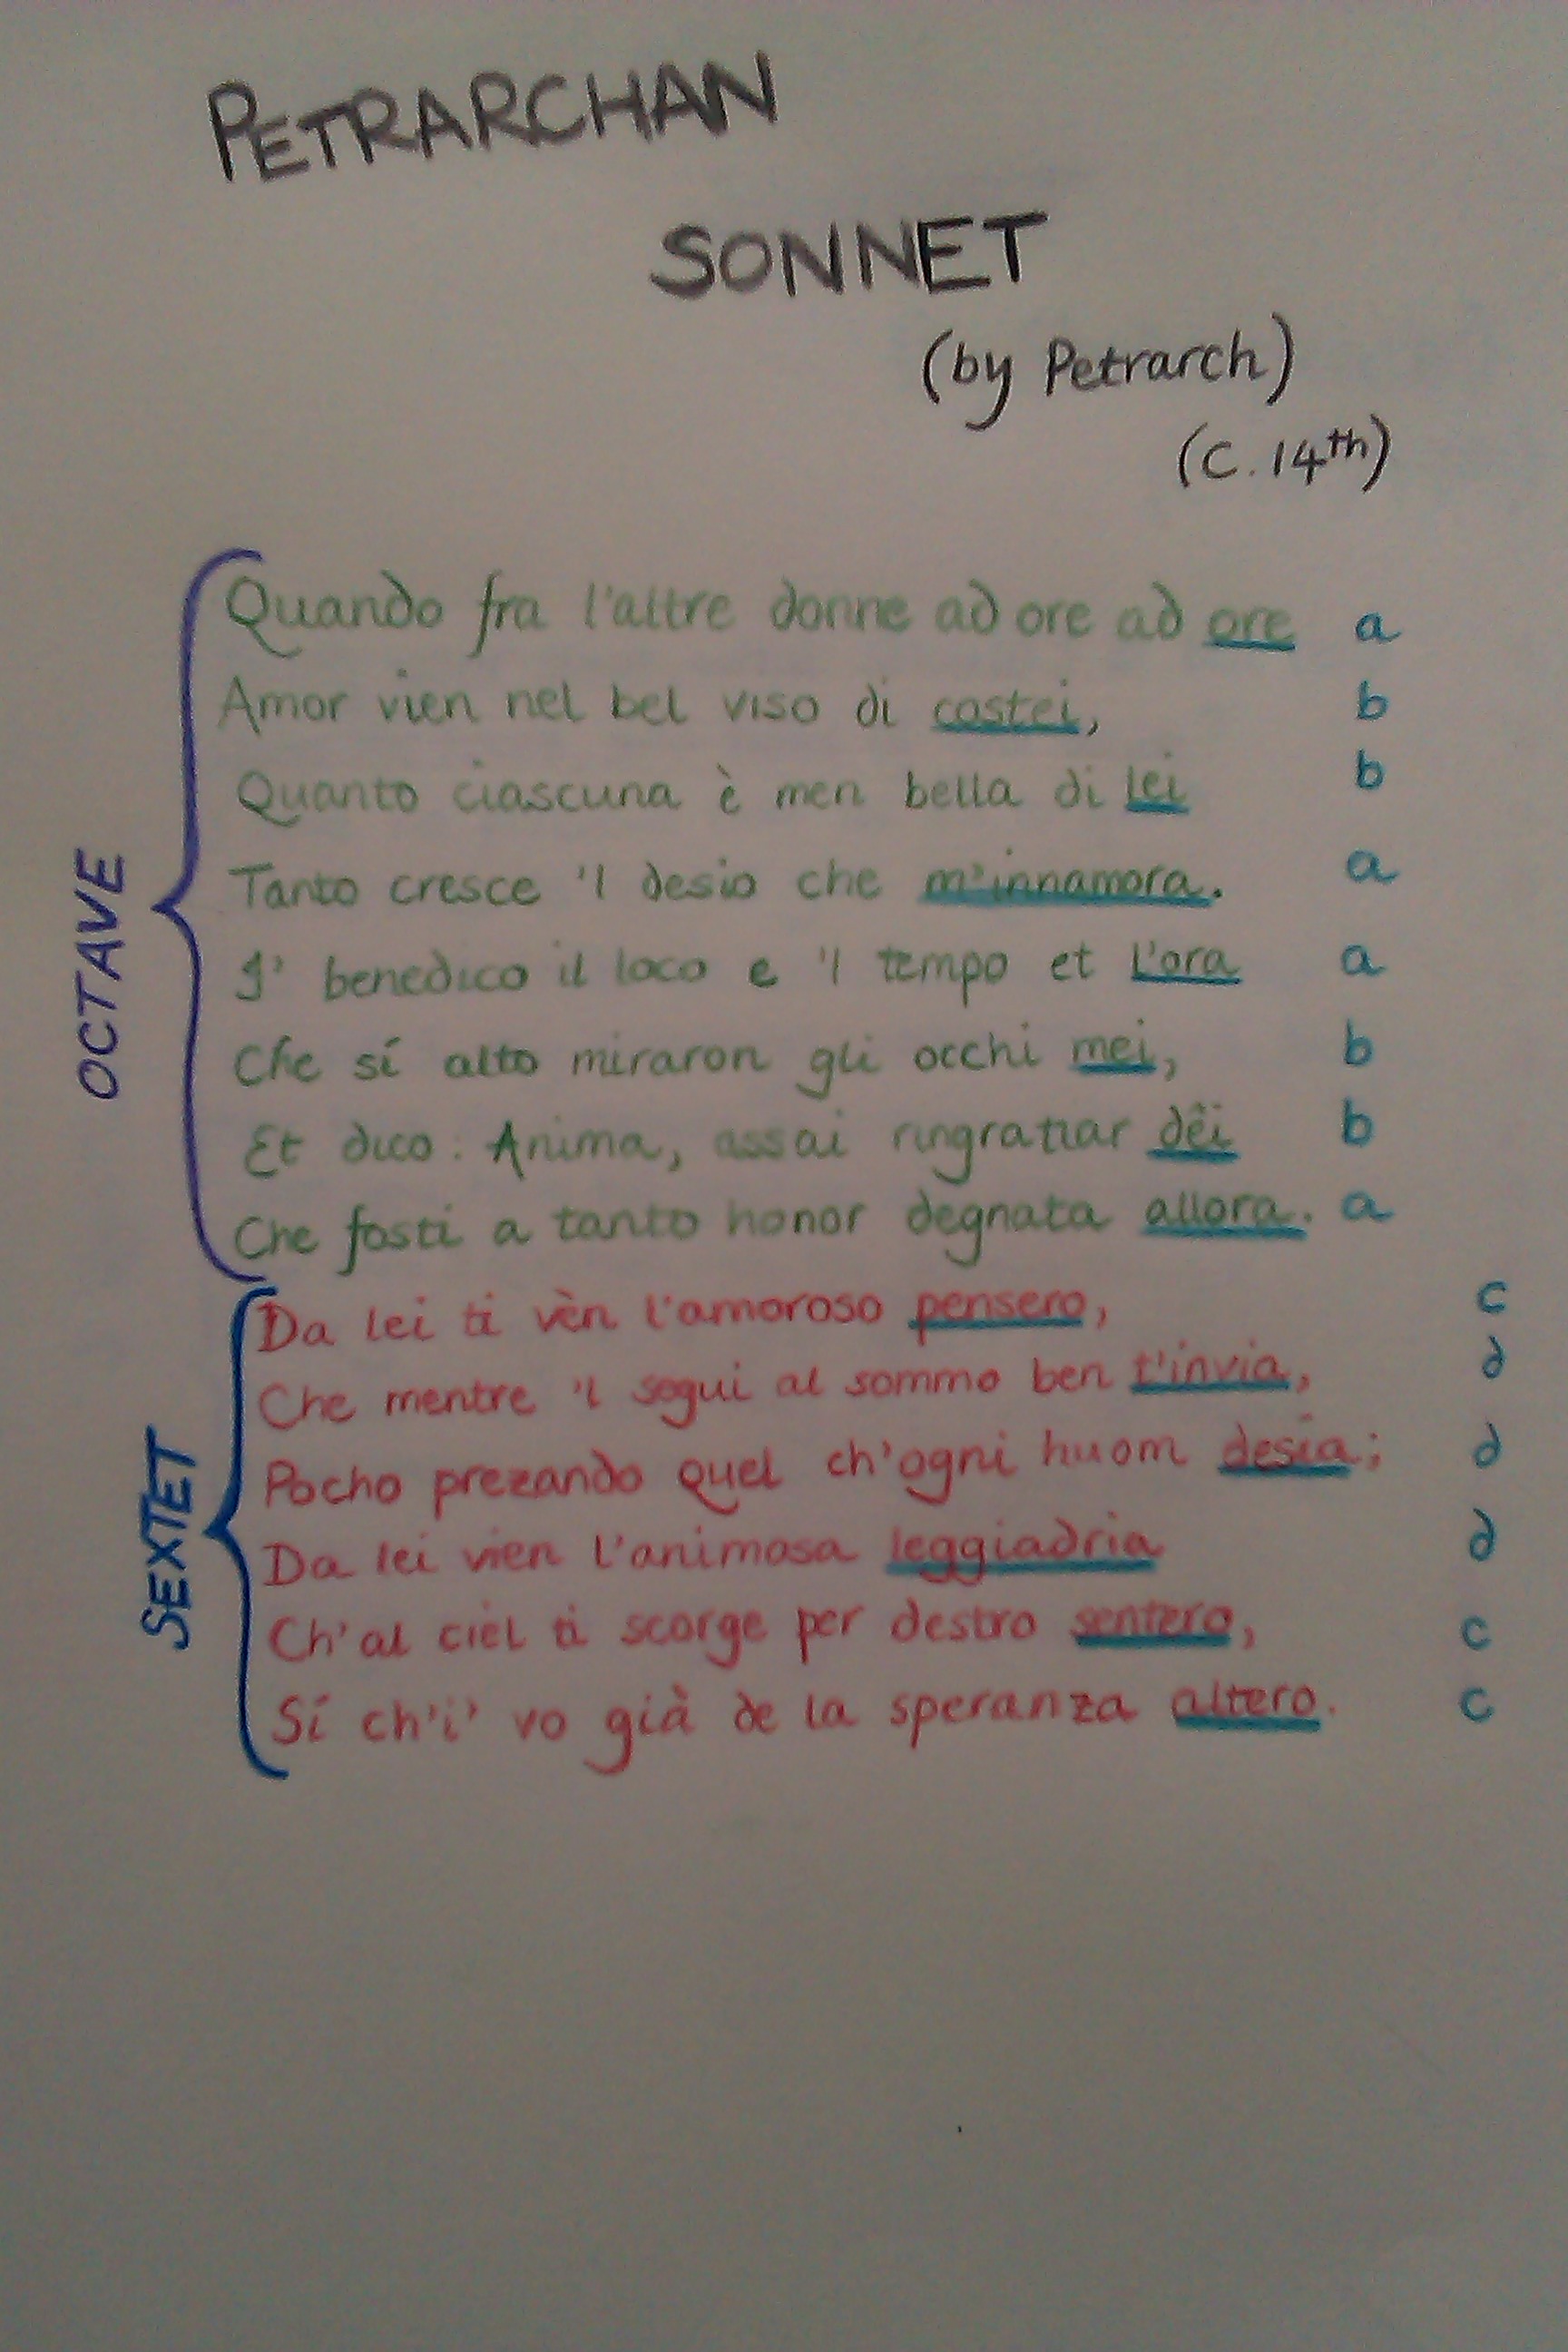 PETRARCHAN
SONNET
(by Petrarch)
(C. 14th)
OCTAVE
Quando fra l'altre donne ad ore ad ore a
Amor vien nel bel viso di costei, b
Quanto ciascuna è men bella di lei b
Tanto cresce 'l desio che m'innamora. a
I' benedico il loco e 'l tempo et l'ora a
Che sí alto miraron gli occhi mei, b
Et dico: Anima, assai ringratiar dêi b
Che fosti a tanto honor degnata allora. a
SEXTET
Da lei ti vèn l'amoroso pensero, c
Che mentre 'l segui al sommo ben t'invia, d
Pocho prezando quel ch'ogni huom desia; d
Da lei vien l'animosa leggiadria d
Ch'al ciel ti scorge per destro sentero, c
Sí ch'i' vo già de la speranza altero. c